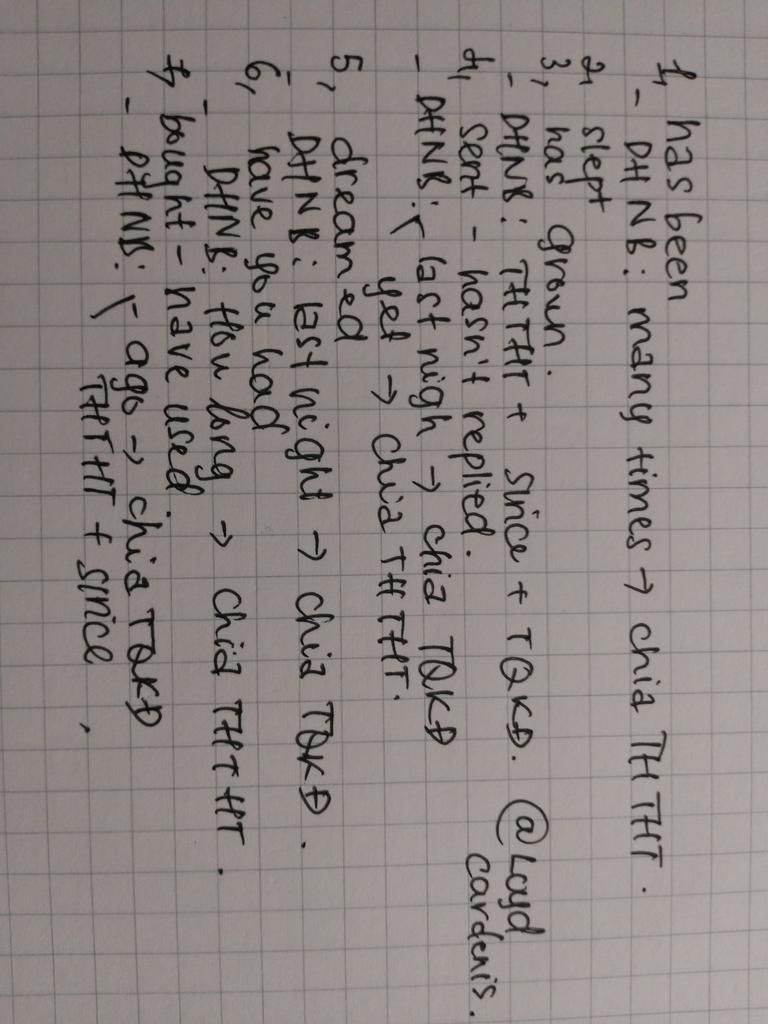 1, has been
- DHNB: many times → chia THTHT.
2, slept
3, has grown.
- DHNB: THTHT + since + TQKĐ.
@Loyd
cardenis.
4, sent - hasn't replied.
- DHNB: last nigh → chia TQKĐ
yet → chia THTHT.
5, dreamed
- DHNB: last night → chia TQKĐ.
6, have you had
- DHNB: How long → chia THTHT.
7, bought - have used.
- DHNB: ago → chia TQKĐ
THTHT + since.